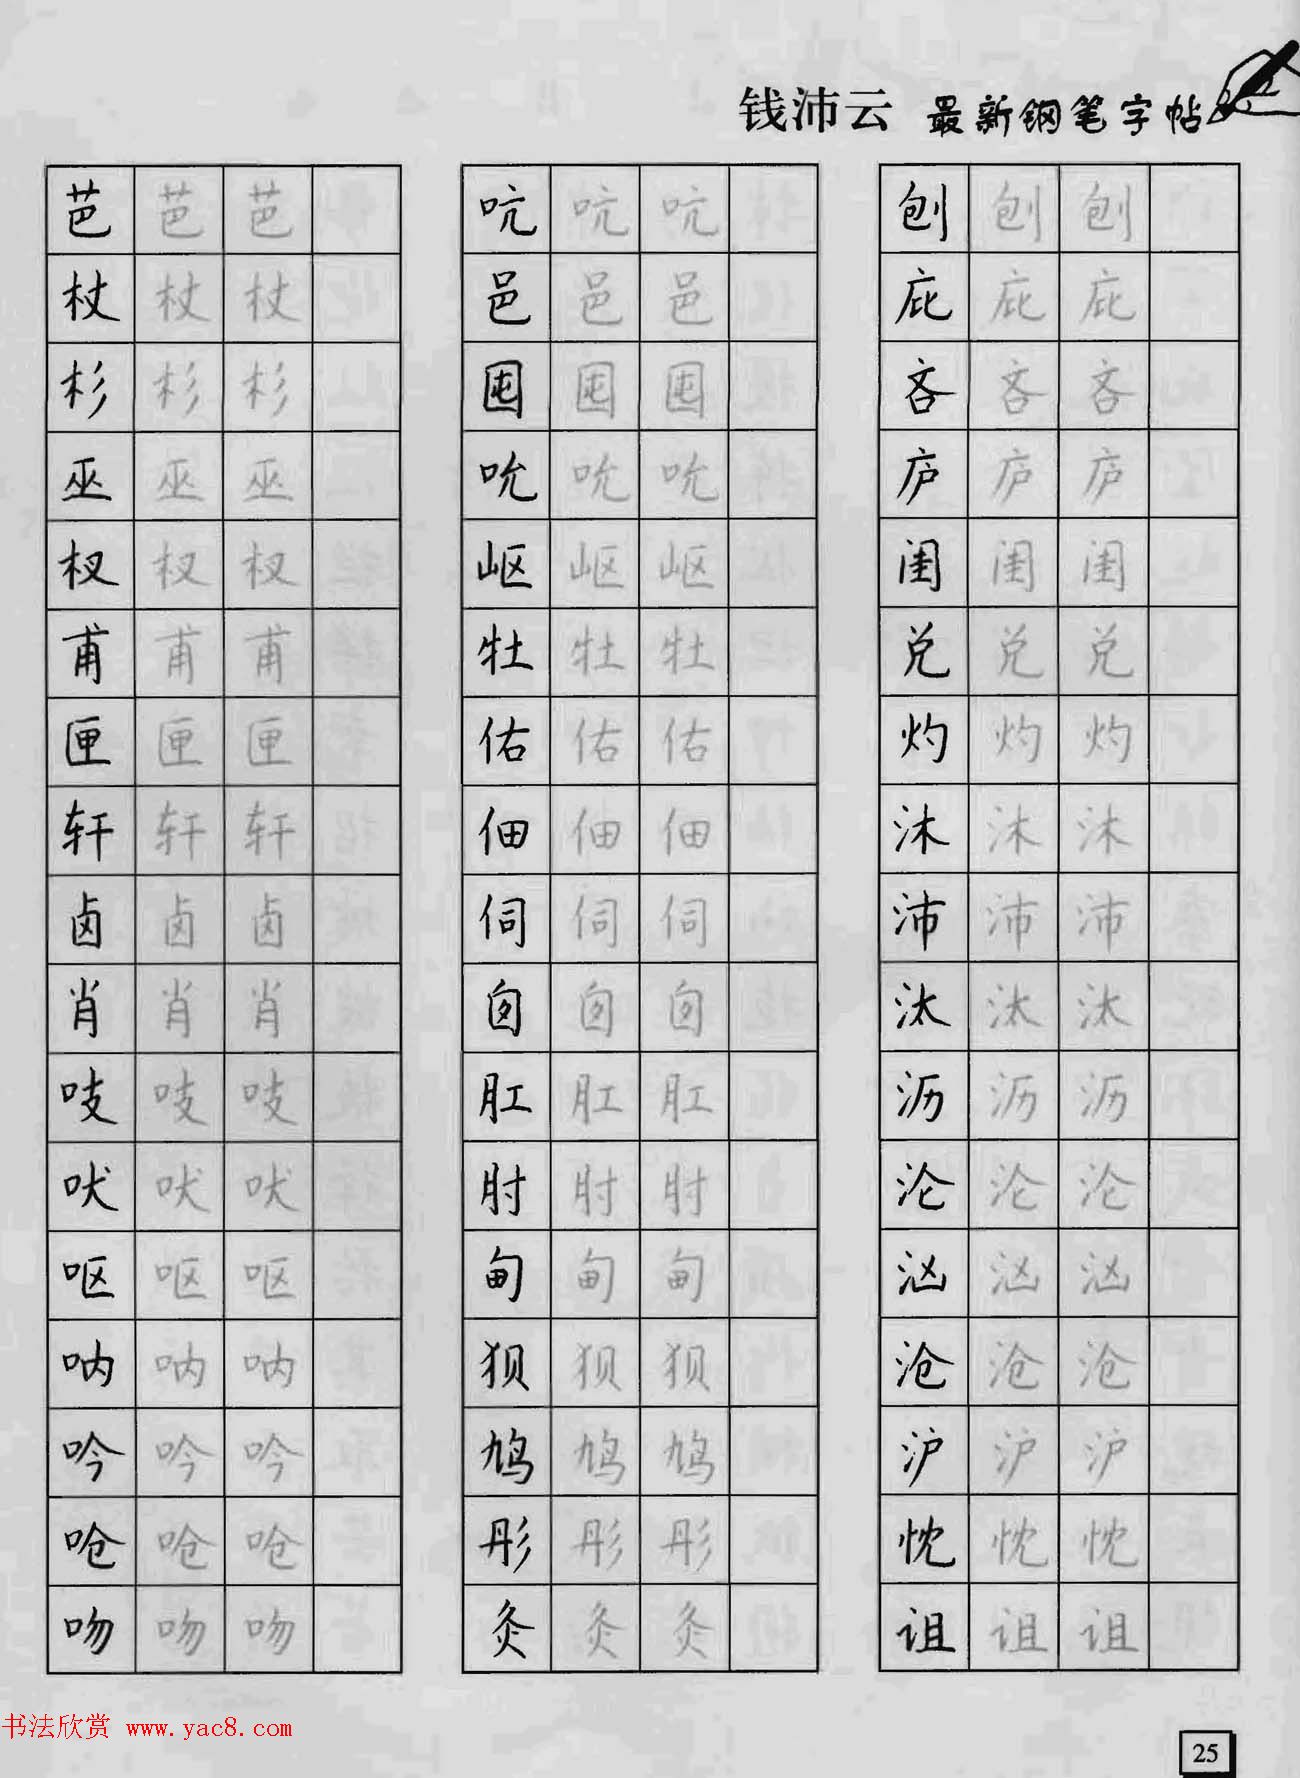 钱沛云 最新钢笔字帖
芭 芭 芭 吭 吭 吭 刨 刨 刨
杖 杖 杖 邑 邑 邑 庇 庇 庇
杉 杉 杉 囤 囤 囤 吝 吝 吝
巫 巫 巫 吮 吮 吮 庐 庐 庐
杈 杈 杈 岖 岖 岖 闺 闺 闺
甫 甫 甫 牡 牡 牡 兑 兑 兑
匣 匣 匣 佑 佑 佑 灼 灼 灼
轩 轩 轩 佃 佃 佃 沐 沐 沐
卤 卤 卤 伺 伺 伺 沛 沛 沛
肖 肖 肖 囱 囱 囱 汰 汰 汰
吱 吱 吱 肛 肛 肛 沥 沥 沥
吠 吠 吠 肘 肘 肘 沦 沦 沦
呕 呕 呕 甸 甸 甸 汹 汹 汹
呐 呐 呐 狈 狈 狈 沧 沧 沧
吟 吟 吟 鸠 鸠 鸠 沪 沪 沪
呛 呛 呛 彤 彤 彤 忱 忱 忱
吻 吻 吻 灸 灸 灸 诅 诅 诅
书法欣赏 www.yac8.com
25